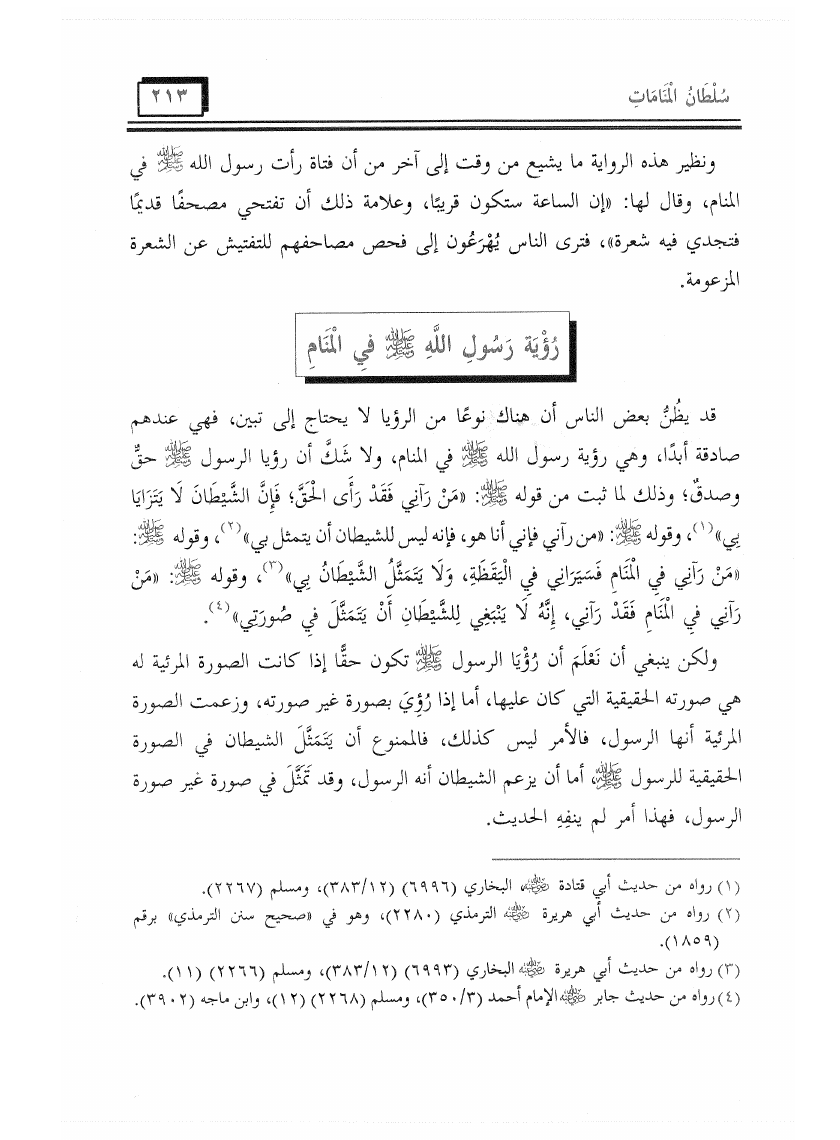 سُلْطَانُ الْمَنَامَاتِ
٢١٣
ونظير هذه الرواية ما يشيع من وقت إلى آخر من أن فتاة رأت رسول الله ﷺ في
المنام، وقال لها: «إن الساعة ستكون قريبًا، وعلامة ذلك أن تفتحي مصحفًا قديمًا
فتجدي فيه شعرة»، فترى الناس يُهْرَعُون إلى فحص مصاحفهم للتفتيش عن الشعرة
المزعومة.
رُؤْيَة رَسُولِ اللَّهِ ﷺ فِي الْمَنَامِ
قد يظُنُّ بعض الناس أن هناك نوعًا من الرؤيا لا يحتاج إلى تبين، فهي عندهم
صادقة أبدًا، وهي رؤية رسول الله ﷺ في المنام، ولا شَكَّ أن رؤيا الرسول ﷺ حقٌّ
وصدقٌ؛ وذلك لما ثبت من قوله ﷺ: «مَنْ رَآنِي فَقَدْ رَأَى الْحَقَّ؛ فَإِنَّ الشَّيْطَانَ لَا يَتَزَايَا
بِي»(١)، وقوله ﷺ: «من رآني فإني أنا هو، فإنه ليس للشيطان أن يتمثل بي»(٢)، وقوله ﷺ:
«مَنْ رَآنِي فِي الْمَنَامِ فَسَيَرَانِي فِي الْيَقَظَةِ، وَلَا يَتَمَثَّلُ الشَّيْطَانُ بِي»(٣)، وقوله ﷺ: «مَنْ
رَآنِي فِي الْمَنَامِ فَقَدْ رَآنِي، إِنَّهُ لَا يَنْبَغِي لِلشَّيْطَانِ أَنْ يَتَمَثَّلَ فِي صُورَتِي»(٤).
ولكن ينبغي أن نَعْلَمَ أن رُؤْيَا الرسول ﷺ تكون حقًّا إذا كانت الصورة المرئية له
هي صورته الحقيقية التي كان عليها، أما إذا رُؤِيَ بصورة غير صورته، وزعمت الصورة
المرئية أنها الرسول، فالأمر ليس كذلك، فالممنوع أن يَتَمَثَّلَ الشيطان في الصورة
الحقيقية للرسول ﷺ، أما أن يزعم الشيطان أنه الرسول، وقد تَمَثَّلَ في صورة غير صورة
الرسول، فهذا أمر لم ينفِهِ الحديث.
(١) رواه من حديث أبي قتادة رضي الله عنه، البخاري (٦٩٩٦) (٣٨٣/١٢)، ومسلم (٢٢٦٧).
(٢) رواه من حديث أبي هريرة رضي الله عنه الترمذي (٢٢٨٠)، وهو في «صحيح سنن الترمذي» برقم
(١٨٥٩).
(٣) رواه من حديث أبي هريرة رضي الله عنه البخاري (٦٩٩٣) (٣٨٣/١٢)، ومسلم (٢٢٦٦) (١١).
(٤) رواه من حديث جابر رضي الله عنه الإمام أحمد (٣٥٠/٣)، ومسلم (٢٢٦٨) (١٢)، وابن ماجه (٣٩٠٢).